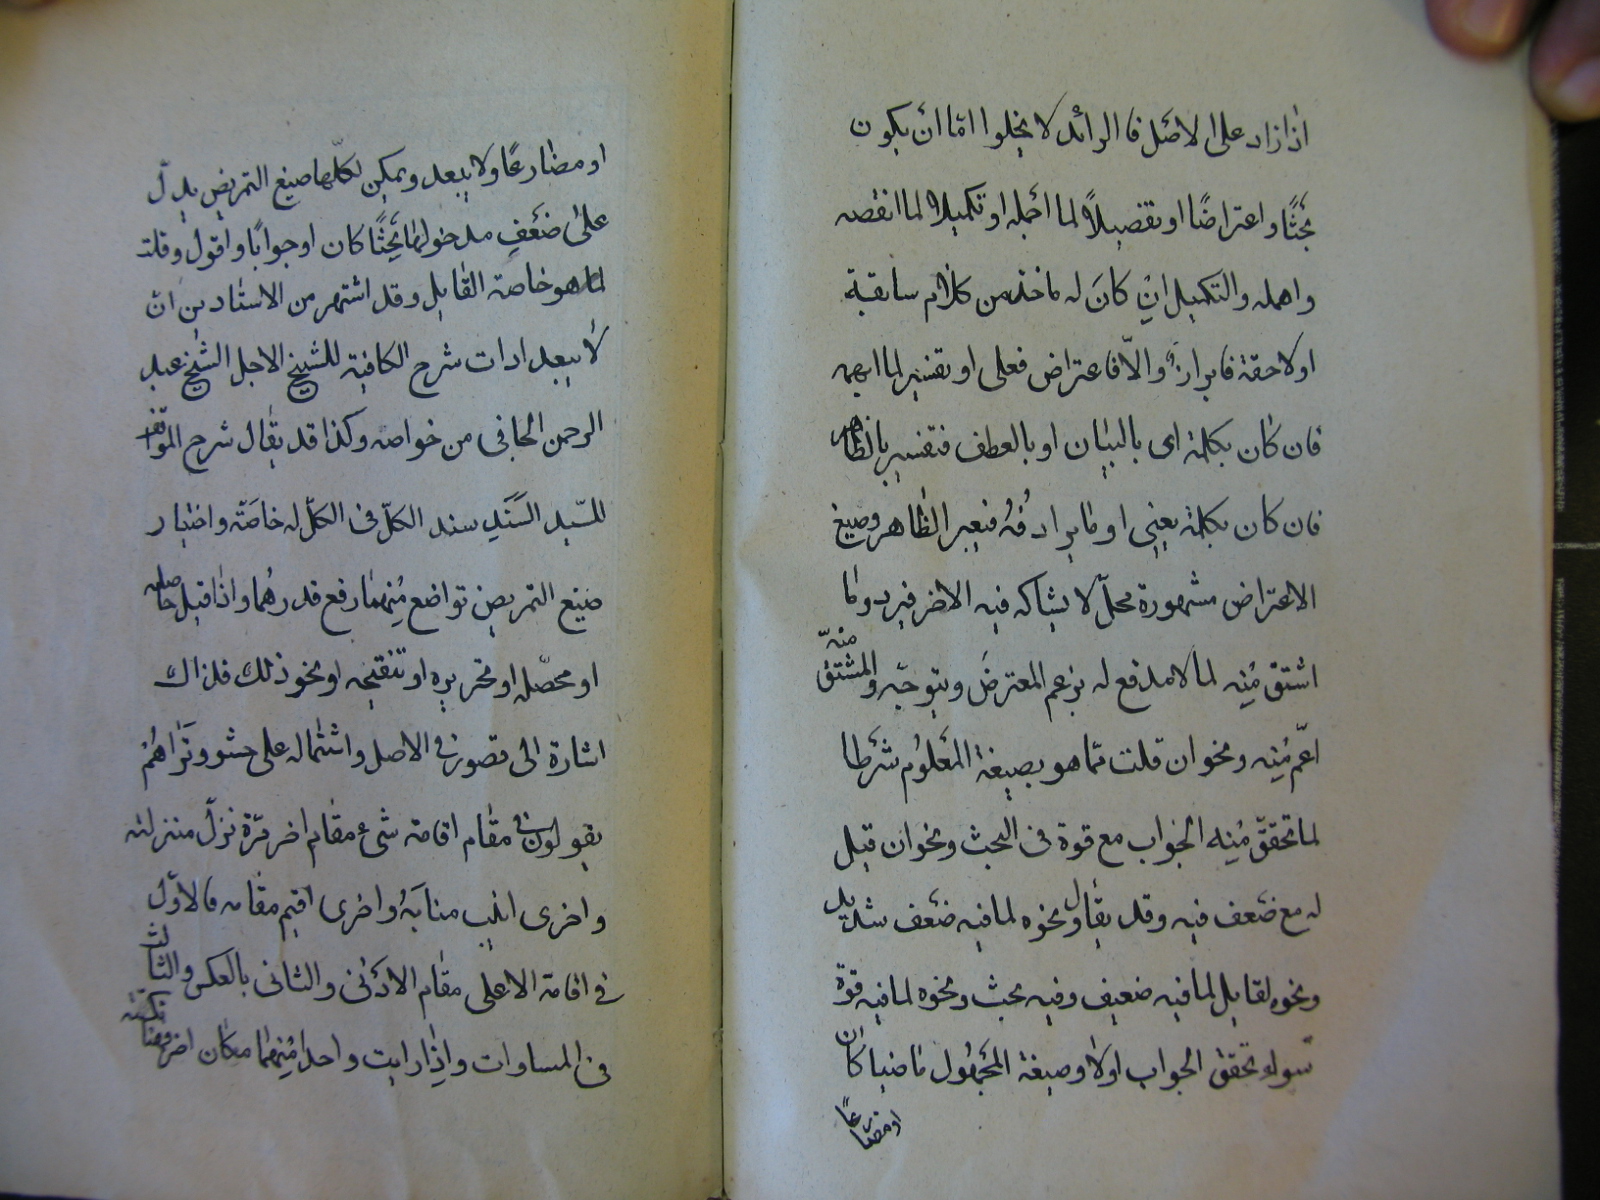 اذا زاد على الاصل فالزائد لا يخلوا امّا ان يكون
بحثًا واعتراضًا او تفصيلاً لما اجمله او تكميلا لما انقصه
واهمله والتكميل ان كان له ماخذ من كلام سابقة
او لاحقة فابراز والّا فاعتراض فعلى او تفسير لما ابهمه
فان كان بكلمة اى بالبيان او بالعطف فتفسير بالظاهر
فان كان بكلمة يعنى او ما يرادفه فتعبير الظاهر وصيغ
الاعتراض مشهورة محلّ لا يشاركه فيه الاخر فيرد وما
اشتق منه لما لا مدفع له بزعم المعترض ويتوجّه والمشتق منه
اعمّ منه ونحو ان قلت مما هو بصيغة المعلوم شرطا
لما تحقق منه الجواب مع قوة فى البحث ونحو ان قيل
له مع ضعف فيه وقد يقال ونحوه لما فيه ضعف شديد
ونحو لقايل لما فيه ضعيف وفيه بحث ونحوه لما فيه قوة
سواء تحقق الجواب اولا وصيغة المجهول ماضيا كان
او مضارعًا
او مضارعًا ولا يبعد ويمكن لكلّها صيغ التمريض يدلّ
على ضعف مدخولها بحثًا كان او جوابًا واقول وقلت
لما هو خاصة القايل وقد اشتهر من الاستادين ان
لا يبعد ادات شرح الكافية للشيخ الاجل الشيخ عبد
الرحمن الجافى من خواصه وكذا قد يقال شرح المواقف
للسّيد السّند سند الكلّ فى الكلّ له خاصّة واختيار
صيغ التمريض تواضع منهما رفع قدرهما واذا قيل حاصله
او محصّله او تحريره او تنقيحه او نحو ذلك فذاك
اشارة الى قصور فى الاصل واشتماله على حشو وتراهم
يقولون فى مقام اقامة شىء مقام اخر مرّة نزّل منزلته
واخرى انيب منابه واخرى اقيم مقامه فالاوّل
فى اقامة الاعلى مقام الادنى والثانى بالعكس والثالث
فى المساوات واذا رايت واحدا منهما مكان اخر فهناك نكتة